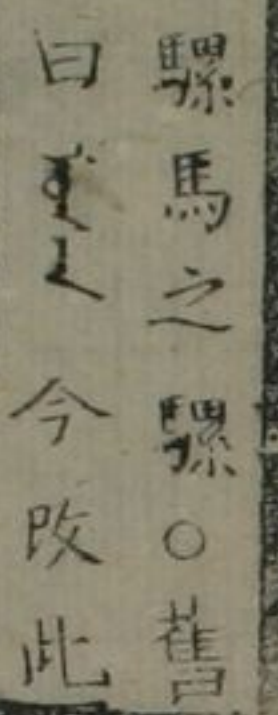 騾馬之騾○舊
曰 今改此